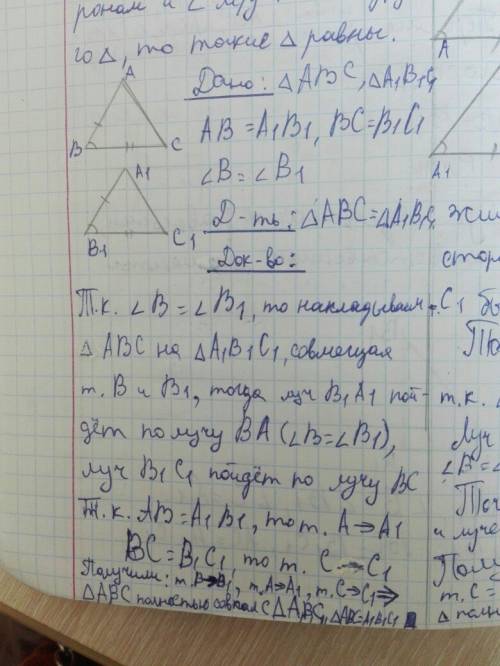 ронам и ∠ м/у
го Δ, то такие Δ равны.
Дано: ΔABC, ΔA1B1C1
AB = A1B1, BC = B1C1
∠B = ∠B1
Д-ть: ΔABC = ΔA1B1C1
Док-во:
A
B
C
A1
B1
C1
Т.к. ∠B = ∠B1, то накладываем
Δ ABC на ΔA1B1C1, совмещая
т. B и B1, тогда луч B1A1 пой-
дёт по лучу BA (∠B=∠B1),
луч B1C1 пойдёт по лучу BC
Т.к. AB = A1B1, то т. A → A1
BC = B1C1, то т. C → C1
Получили: т. B→B1, т. A→A1, т. C→C1 ⇒
ΔABC полностью совпал с ΔABC, ΔABC=A1B1C1
A
A1
жи
сторо
т. C1 бы
По
т.к.
Луч
∠B = ∠
То
и луче
Полу
т. C =
Δ полн